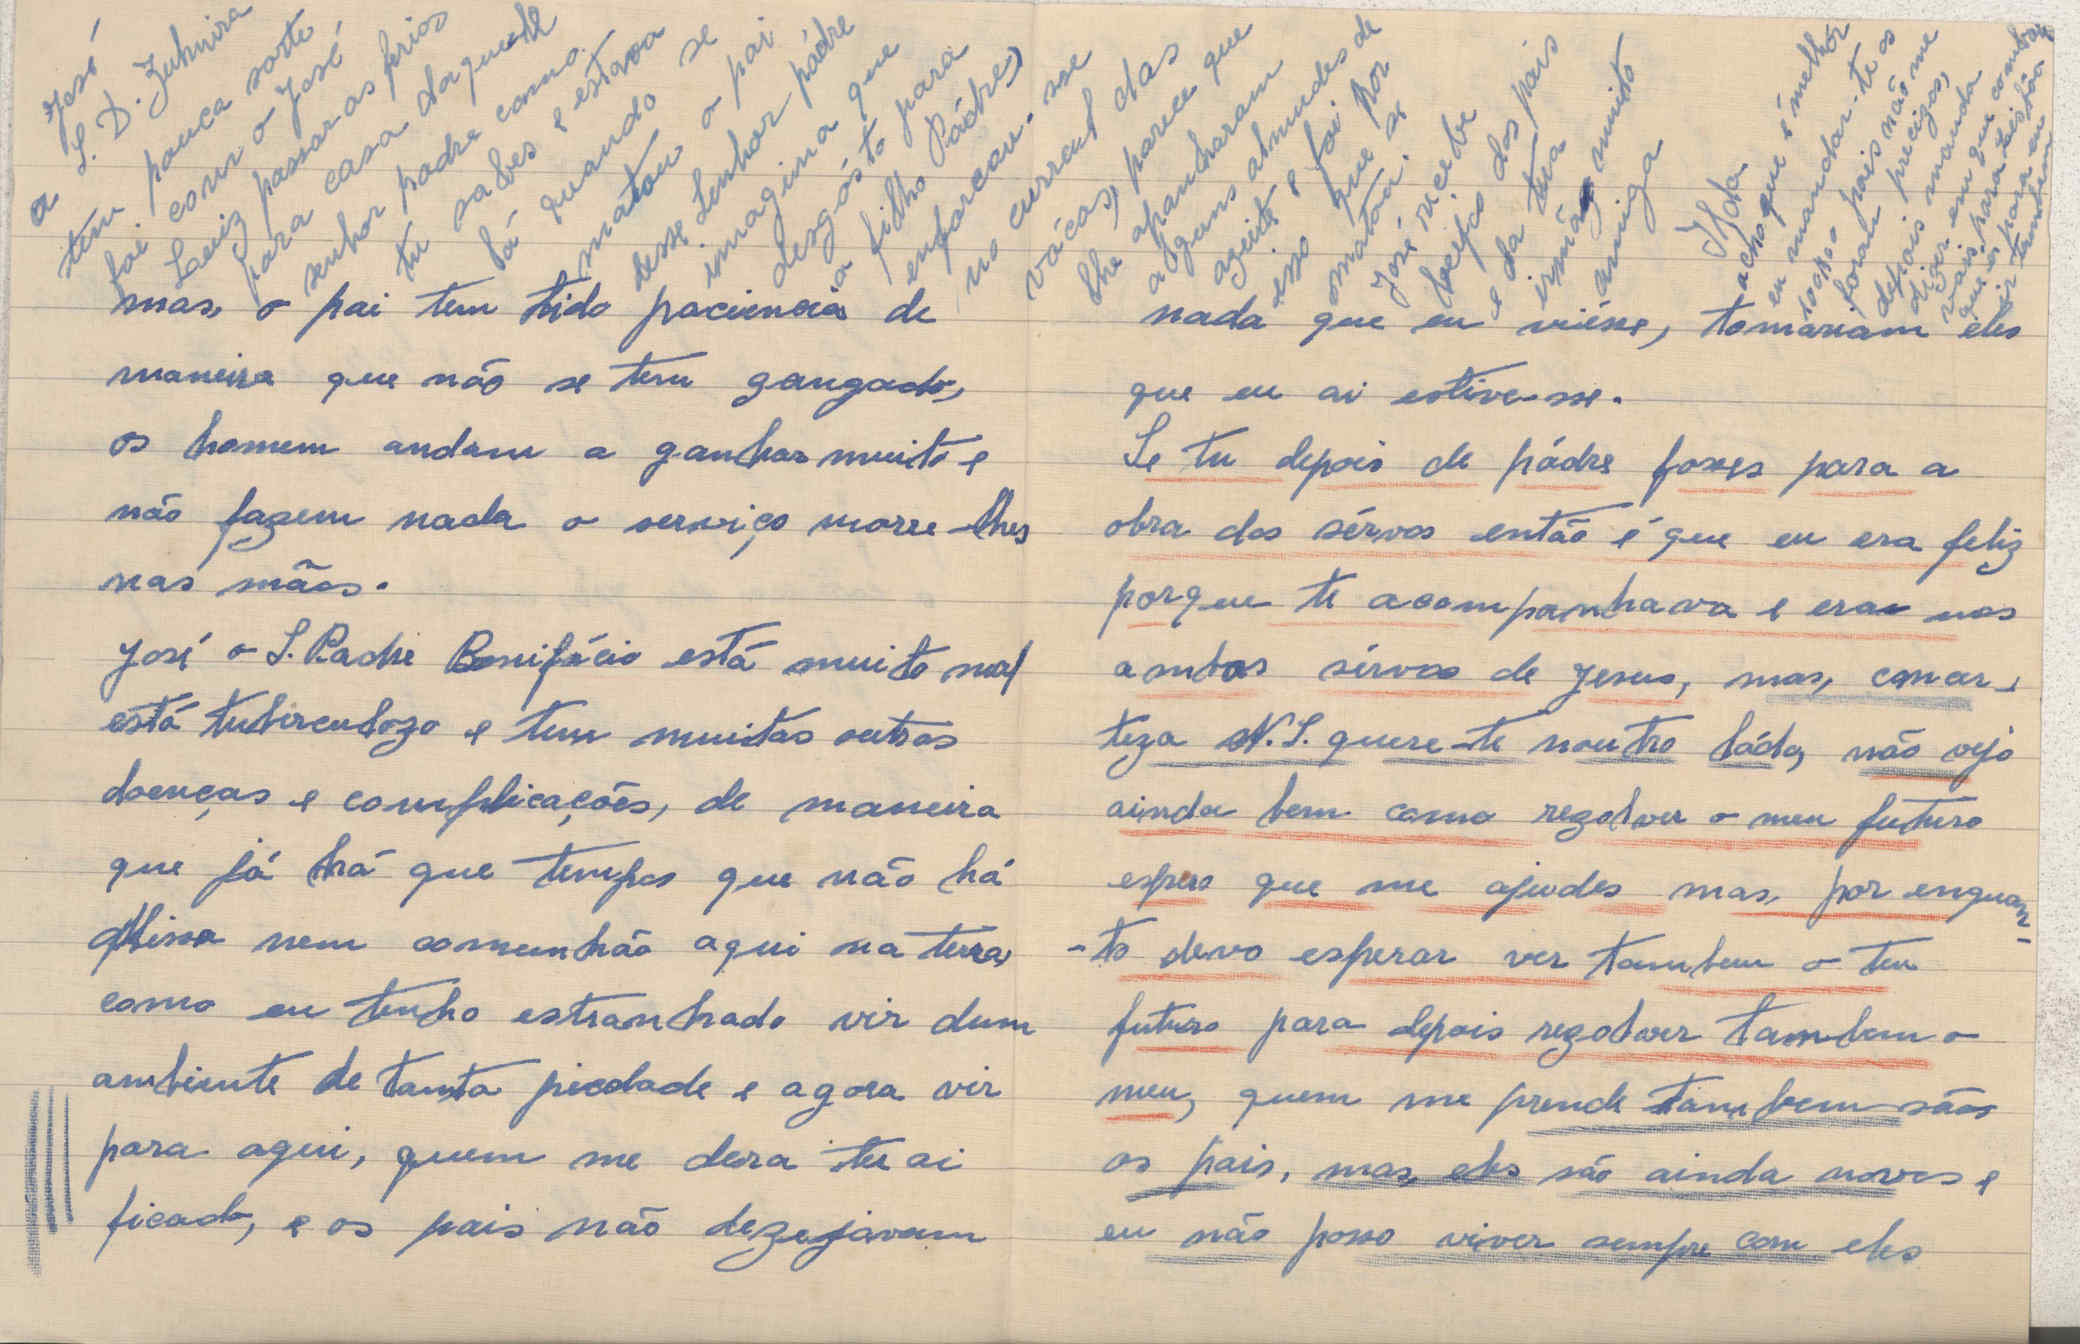 mas, o pai tem tido paciencia de
maneira que não se tem gangado,
os homem andam a ganhar muito e
não fazem nada o serviço morre-lhes
nas mãos.
José o S. Padre Bonifácio está muito mal
está tubirculozo e tem muitas outras
doenças e complicações, de maneira
que já há que tempos que não há
Missa nem comunhão aqui na terra,
como eu tenho estranhado vir dum
ambiente de tanta piedade e agora vir
para aqui, quem me dera ter ai
ficado, e os pais não dezejavam
nada que eu viésse, tomariam eles
que eu ai estive-sse.
Se tu depois de pádre fosses para a
obra dos sérvos então é que eu era feliz
porque te acompanhava e era nos
ambos sérvos de Jesus, mas, com cer-
teza N.S. quere-te noutro ládo, não vejo
ainda bem como rezolver o meu futuro
espero que me ajudes mas, por enquan-
-to devo esperar ver tambem o teu
futuro para depois rezolver tambem o
meu, quem me prende tambem sãos
os pais, mas, eles são ainda novos e
eu não posso viver sempre com eles
José
a S. D. Zulmira
tem pouca sorte
foi com o José
Luiz passar as frios
para casa daquele
senhor padre como
tu sabes e estava
lá quando se
matou o pai
desse Senhor pádre
imagina que
desgósto para
o filho Pádre,
enforcou-sse
no curral das
vácas, parece que
lhe apanharam
alguns almudes de
azeite e foi por
isso que se
matou.
José recebe
beijos dos pais
e da tua
irmã muito
amiga
Nota
acho que é melhór
eu mandar-te os
pais não me
foram precizos,
depois manda
dizer em que comboio
vais para Leistôa
que é para eu
ir tambem